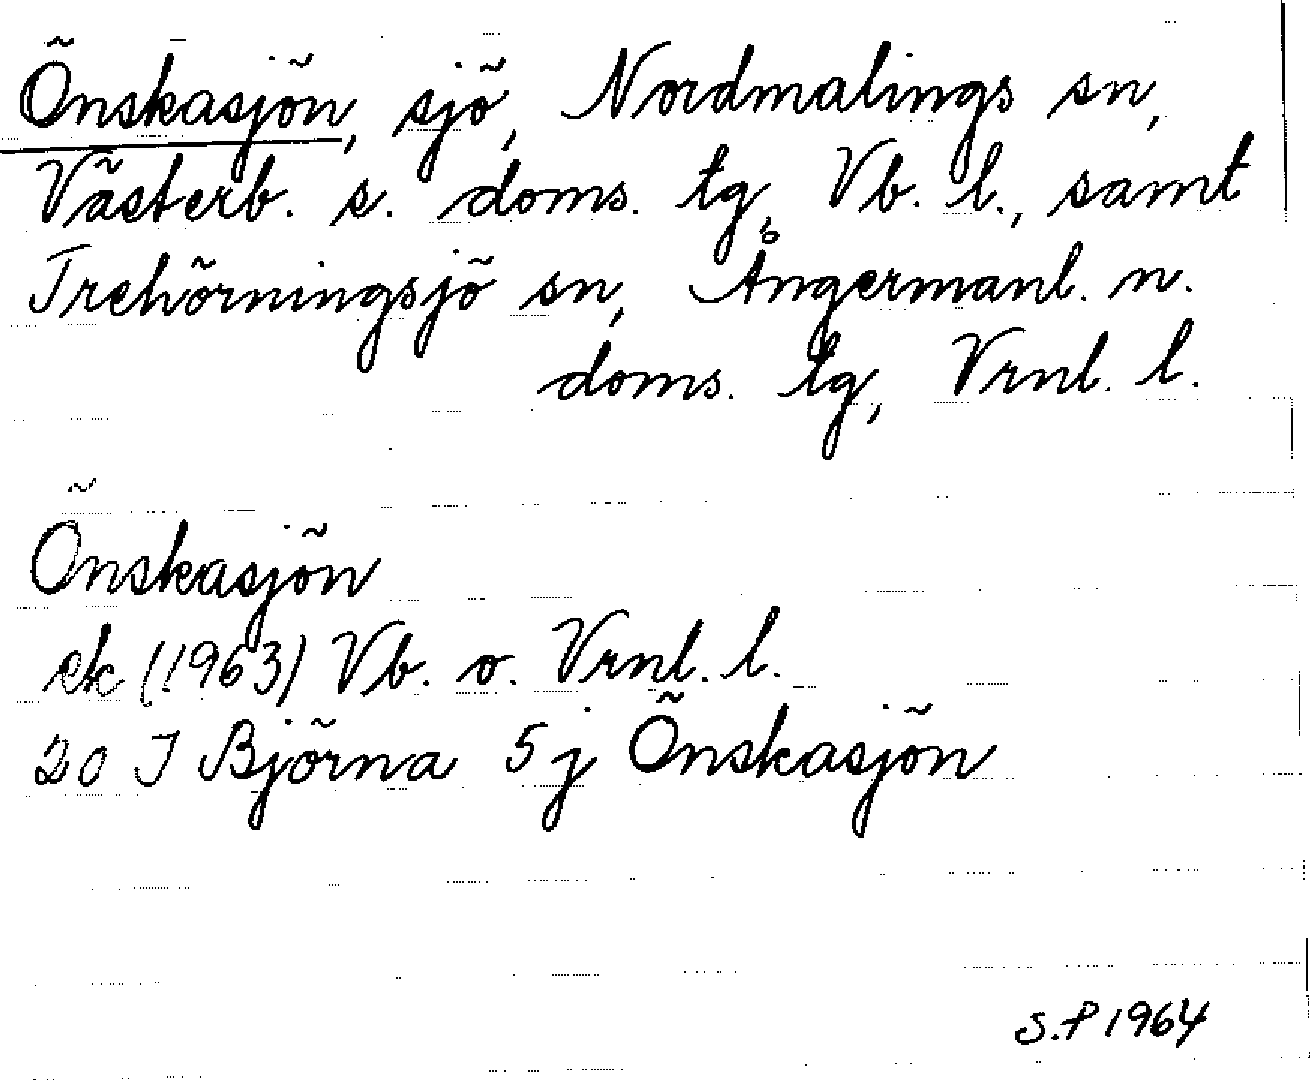 Önskasjön, sjö, Nordmalings sn,
Västerb. s. doms. tg, Vb. l., samt
Trehörningsjö sn, Ångermanl. n.
doms. tg, Vrnl. l.
Önskasjön
ek (1963) Vb. o. Vrnl. l.
20 J Björna 5j Önskasjön
S.P 1964